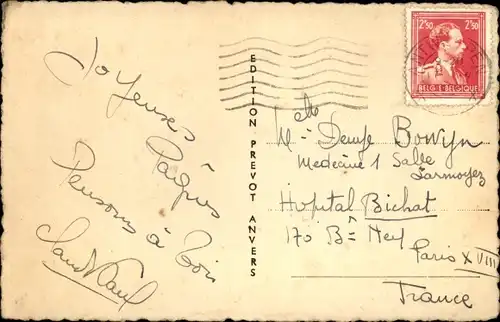 Joyeuses
Pâques
Pensons à toi
EDITION PREVOT ANVERS
2F50 2F50
BELGIE-BELGIQUE
Melle Denyse Bowyn
Medecine 1 Salle
Larmoyez
Hopital Bichat
170 Bd Ney
Paris XVIII
France